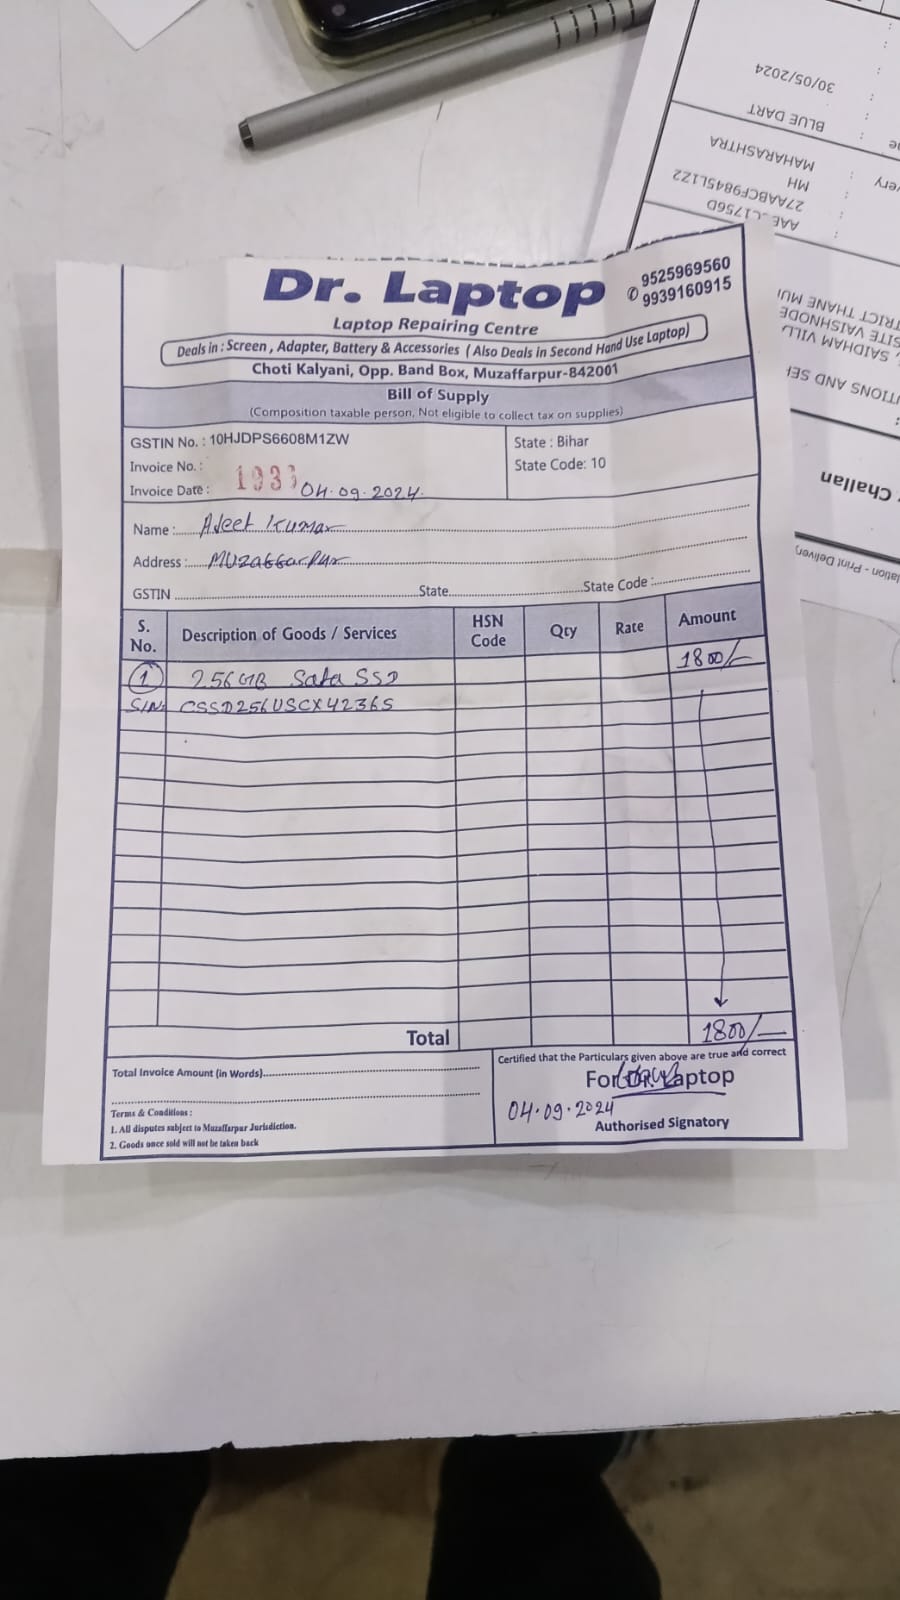 Dr. Laptop
9525969560
9939160915
Laptop Repairing Centre
Deals in : Screen, Adapter, Battery & Accessories (Also Deals in Second Hand Use Laptop)
Choti Kalyani, Opp. Band Box, Muzaffarpur-842001
Bill of Supply
(Composition taxable person, Not eligible to collect tax on supplies)
GSTIN No. : 10HJDPS6608M1ZW
State : Bihar
Invoice No. :
State Code: 10
Invoice Date : 04.09.2024
Name : Ajeet Kumar
Address : Muzaffarpur
GSTIN State State Code :
S. No. Description of Goods / Services HSN Code Qty Rate Amount
1 256GB Sata SSD 1800/-
S/N: CSSD256USCX42365
Total 1800/-
Total Invoice Amount (in Words)
Certified that the Particulars given above are true and correct
For Dr. Laptop
04.09.2024
Authorised Signatory
Terms & Conditions :
1. All disputes subject to Muzaffarpur Jurisdiction.
2. Goods once sold will not be taken back
30/05/2024
BLUE DART
MAHARASHTRA
MH
27AABCF9845L1Z2
Challan